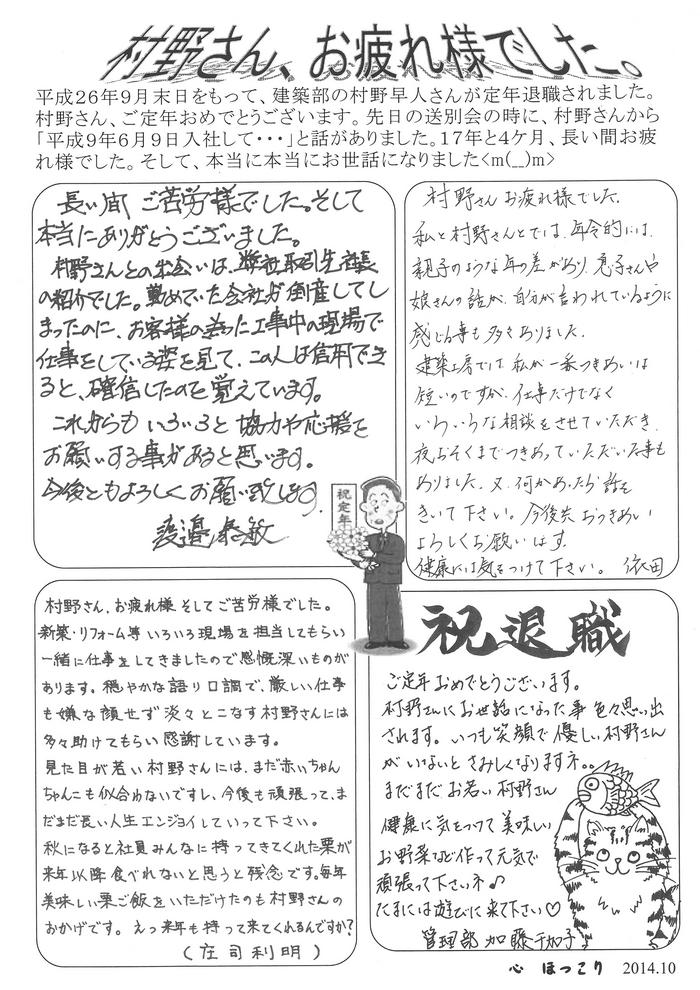 村野さん、お疲れ様でした。
平成26年9月末日をもって、建築部の村野早人さんが定年退職されました。
村野さん、ご定年おめでとうございます。先日の送別会の時に、村野さんから
「平成9年6月9日入社して・・・」と話がありました。17年と4ケ月、長い間お疲
れ様でした。そして、本当に本当にお世話になりました<m(__)m>
長い間 ご苦労様でした。そして
本当にありがとうございました。
村野さんとの出会いは、弊社取引先社長
の紹介でした。勤めていた会社が倒産してし
まったのに、お客様の為に工事中の現場で
仕事をしている姿を見て、この人は信用でき
ると、確信したのを覚えています。
これからも いろいろと 協力や応援を
お願いする事があると思います。
今後ともよろしくお願い致します。
渡邉 泰敏
村野さんお疲れ様でした。
私と村野さんとでは、年令的には、
親子のような年の差があり、息子さんや
娘さんの話が、自分が言われているように
感じる事も多々ありました。
建築工房でいて私が一番つきあいは
短いのですが、仕事だけでなく
いろいろな相談をさせていただき、
夜おそくまでつきあっていただいた事も
ありました。又、何かあったら話を
きいて下さい。今後共おつきあい
よろしくお願いします。
健康には気をつけて下さい。 依田
祝定年
村野さん、お疲れ様 そしてご苦労様でした。
新築・リフォーム等 いろいろ現場を担当してもらい
一緒に仕事をしてきましたので感慨深いものが
あります。穏やかな語り口調で、厳しい仕事
も嫌な顔せず 淡々とこなす村野さんには
多々助けてもらい 感謝しています。
見た目が若い村野さんには、まだ赤いちゃん
ちゃんこも似合わないですし、今後も頑張って、ま
だまだ長い人生エンジョイしていって下さい。
秋になると社員みんなに持ってきてくれた栗が
来年以降食べれないと思うと残念です。毎年
美味しい栗ご飯をいただけたのも村野さんの
おかげです。えっ来年も持って来てくれるんですか?
(庄司利明)
祝退職
ご定年おめでとうございます。
村野さんにお世話になった事 色々思い出
されます。いつも笑顔で優しい村野さん
がいないと さみしくなりますネ。
まだまだ お若い村野さん
健康に気をつけて 美味しい
お野菜など作って元気で
頑張って下さいネ♪
たまには遊びに来て下さい♡
管理部 加藤千加子
心 ほっこり 2014.10